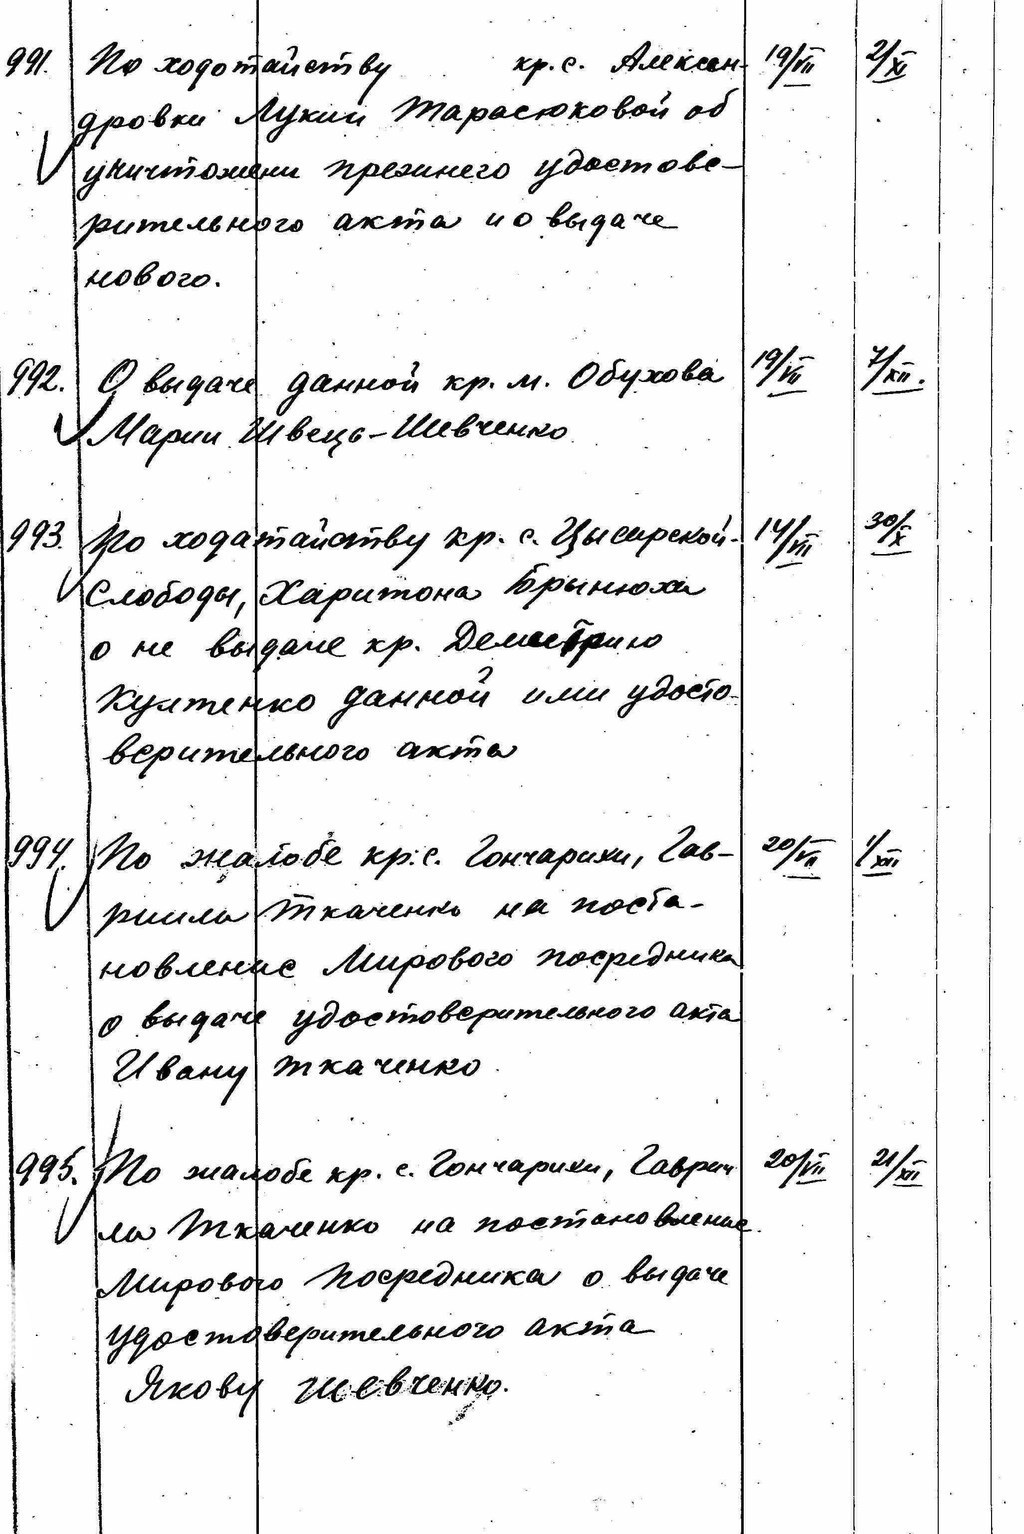 991. По ходотайству кр. с. Алексан- 19/VII 2/XI
дровки Лукии Тарасюковой об
уничтожени прежнего удостове-
рительного акта и о выдаче
нового.
992. О выдаче данной кр. м. Обухова 19/VII 7/XII.
Марии Швець-Шевченко
993. По ходатайству кр. с. Цысарской- 14/VII 30/X
Слободы, Харитона Брынюха
о не выдаче кр. Деметрию
данной или удосто-
верительного акта
994. По жалобе кр. с. Гончарихи, Гав- 20/VII 1/XII
риила Ткаченко на поста-
новление Мирового посредника
о выдаче удостоверительного акта
Ивану Ткаченко
995. По жалобе кр. с. Гончарихи, Гаврии 20/VII 21/XII
ла Ткаченко на постановление
Мирового посредника о выдаче
удостоверительного акта
Якову Шевченко.